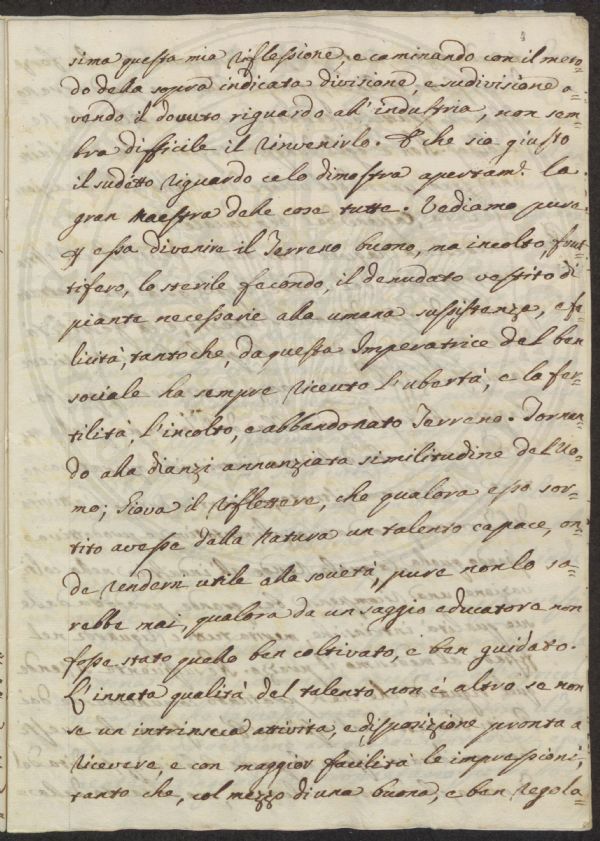 sima questa mia riflessione, e caminando con il meto=
do della sopra indicata divisione, e sudivisione a=
vendo il dovuto riguardo all' industria, non sem=
bra difficile il rinvenirlo. E che sia giusto
il sudetto riguardo celo dimostra apertam.e la
gran Maestra delle cose tutte. Vediamo pure
essa divenire il Terreno buono, ma incolto, frut=
tifero, lo sterile fecondo, il denudato vestito di
piante necessarie alla umana sussistenza, e fe=
licità, tanto che, da questa Imperatrice del ben
sociale ha sempre riceuto l'ubertà, e la fer=
tilità, l'incolto, e abbandonato Terreno. Tornan=
do alla dianzi annunziata similitudine del Uo=
mo; Giova il riflettere, che qualora esso sor=
tito avesse dalla Natura un talento capace, on=
de rendersi utile alla società, pure non lo sa=
rebbe mai, qualora da un saggio educatore non
fosse stato quello ben coltivato, e ben guidato.
L'innata qualità del talento non è altro se non
se un intrinseca attività, e disposizione pronta a
ricevere, e con maggior facilità le impressioni,
tanto che, col mezzo di una buona, e ben regola=